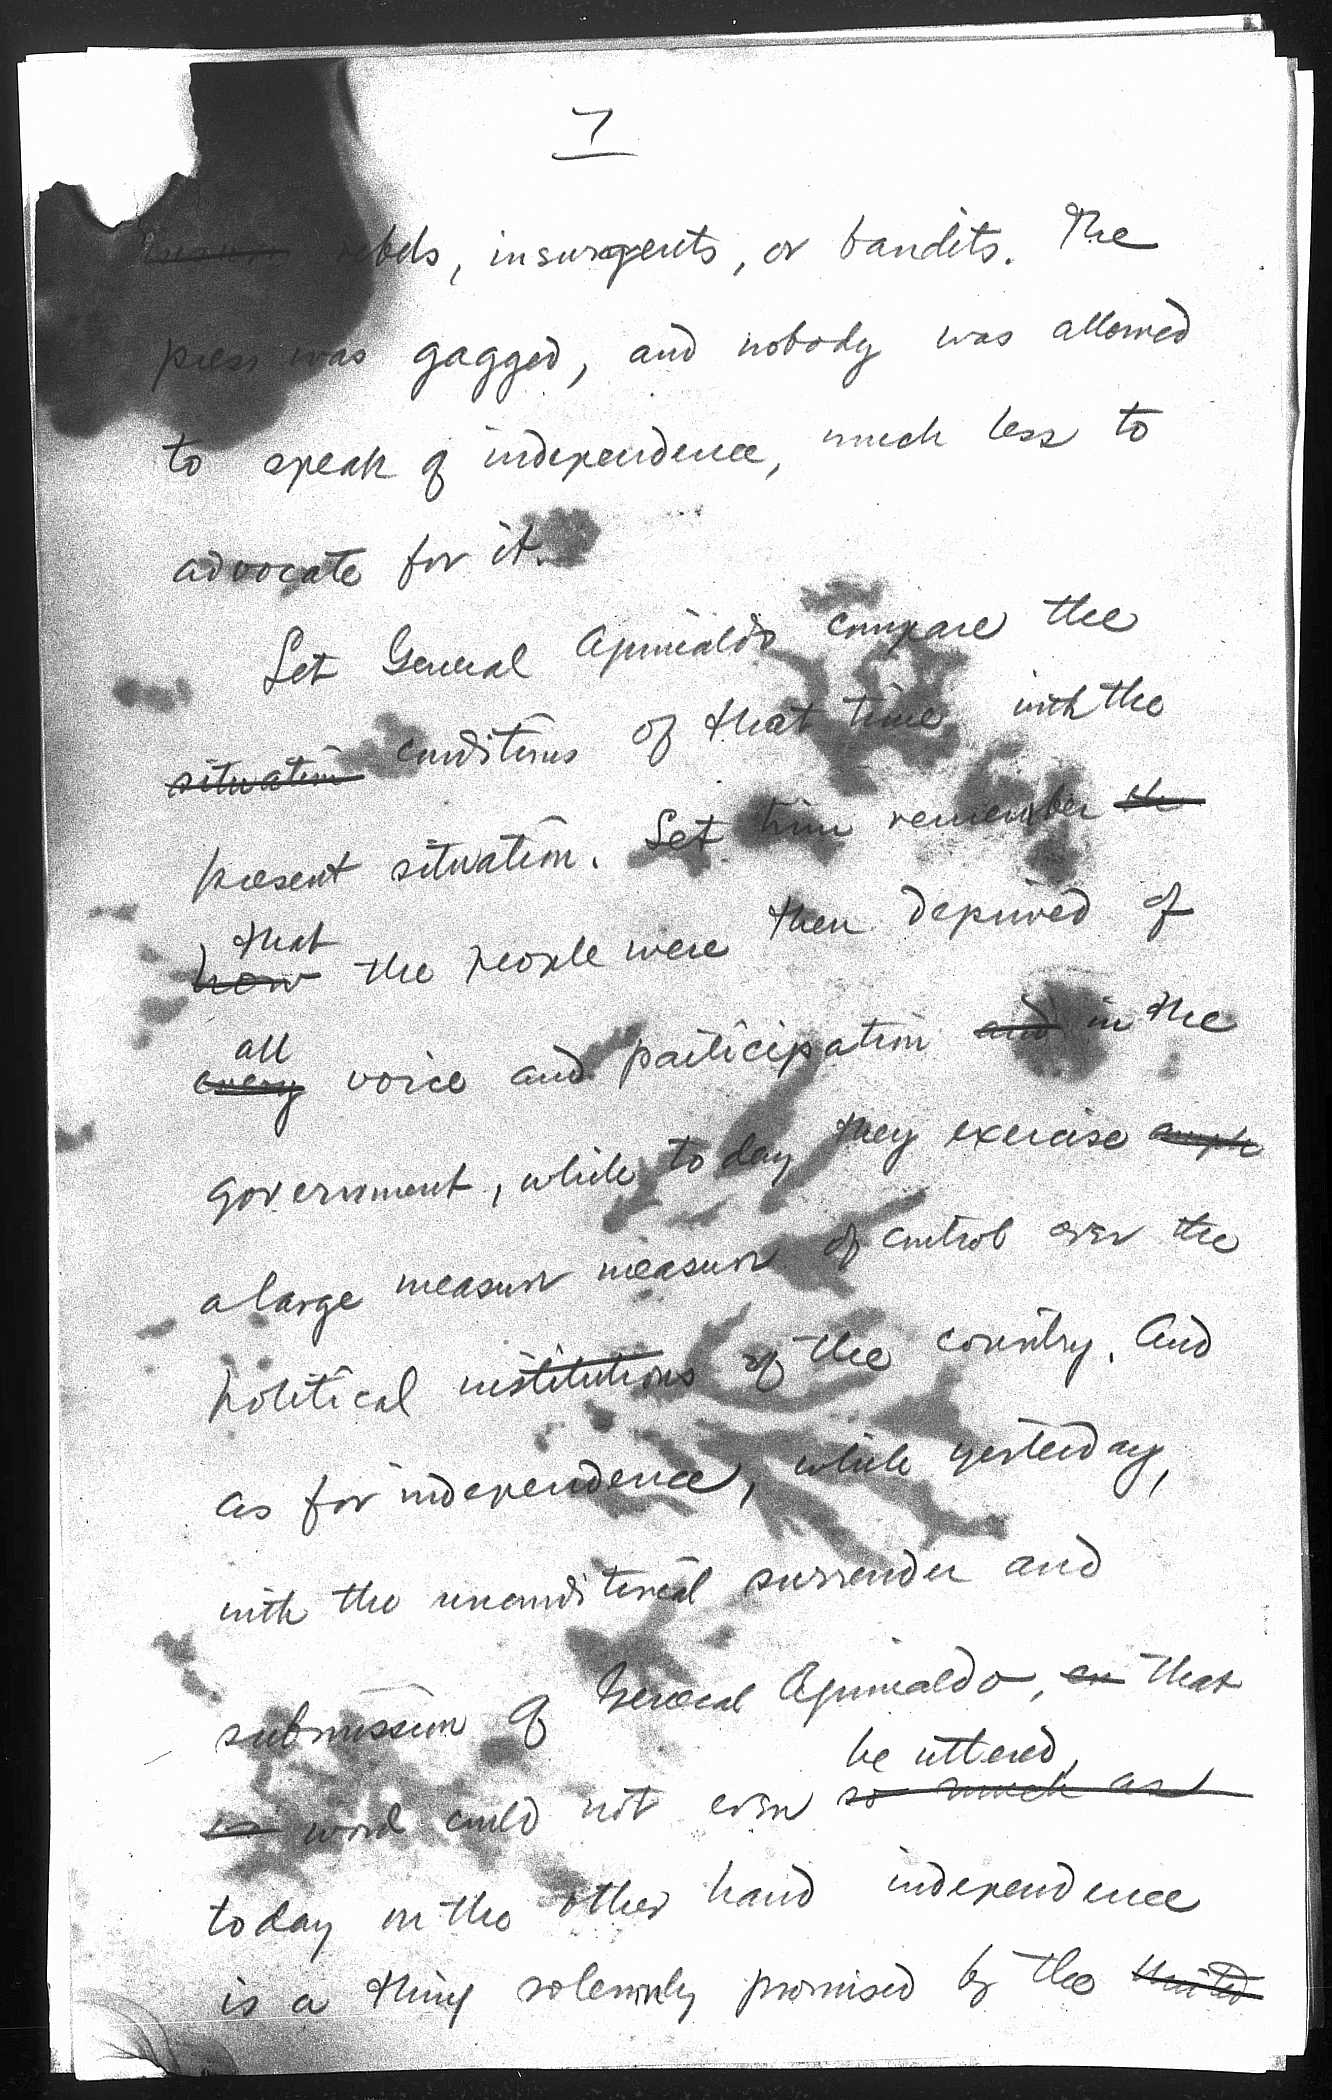 7
rebels, insurgents, or bandits. The
press was gagged, and nobody was allowed
to speak of independence, much less to
advocate for it.
Let General Aguinaldo compare the
situation conditions of that time with the
present situation. Let him remember the
that
how the people were then deprived of
all
every voice and participation and in the
government, while today they exercise ample
a large measure measure of control over the
political institutions of the country. And
as for independence, while yesterday,
with the unconditional surrender and
submission of General Aguinaldo, that
be uttered,
word could not even so much as
today on the other hand independence
is a thing solemnly promised by the United